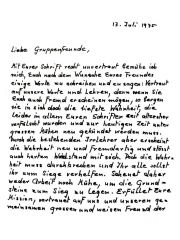 13. Juli 1975
Liebe Gruppenfreunde,
Mit Eurer Schrift recht unvertraut bemühe ich
mich, Euch nach dem Wunsche Eures Freundes
einige Worte zu schreiben und zu sagen: Vertraut
auf unsere Worte und Lehren, denn wenn Sie
Euch auch fremd erscheinen mögen, so bergen
sie in sich doch die tiefste Wahrheit, die
leider in allen Euren Schriften seit altersher
umfälscht wurden und zur heutigen Zeit unter
grossen Mühen neu gekündet werden muss.
Durch die bestehenden Irrlehren aber erscheint
Euch die Wahrheit neu und fremdartig und stösst
auch harten Widerstand mit sich. Doch die Wahr-
heit muss durchbrechen und Ihr alle sollet
ihr zum Siege verhelfen. Scheuet daher
weder Arbeit noch Mühe, um die Grund-
steine zum Sieg zu legen. Erfüllet Eure
Mission, vertrauet auf uns und unseren ge-
meinsamen grossen und weisen Freund der